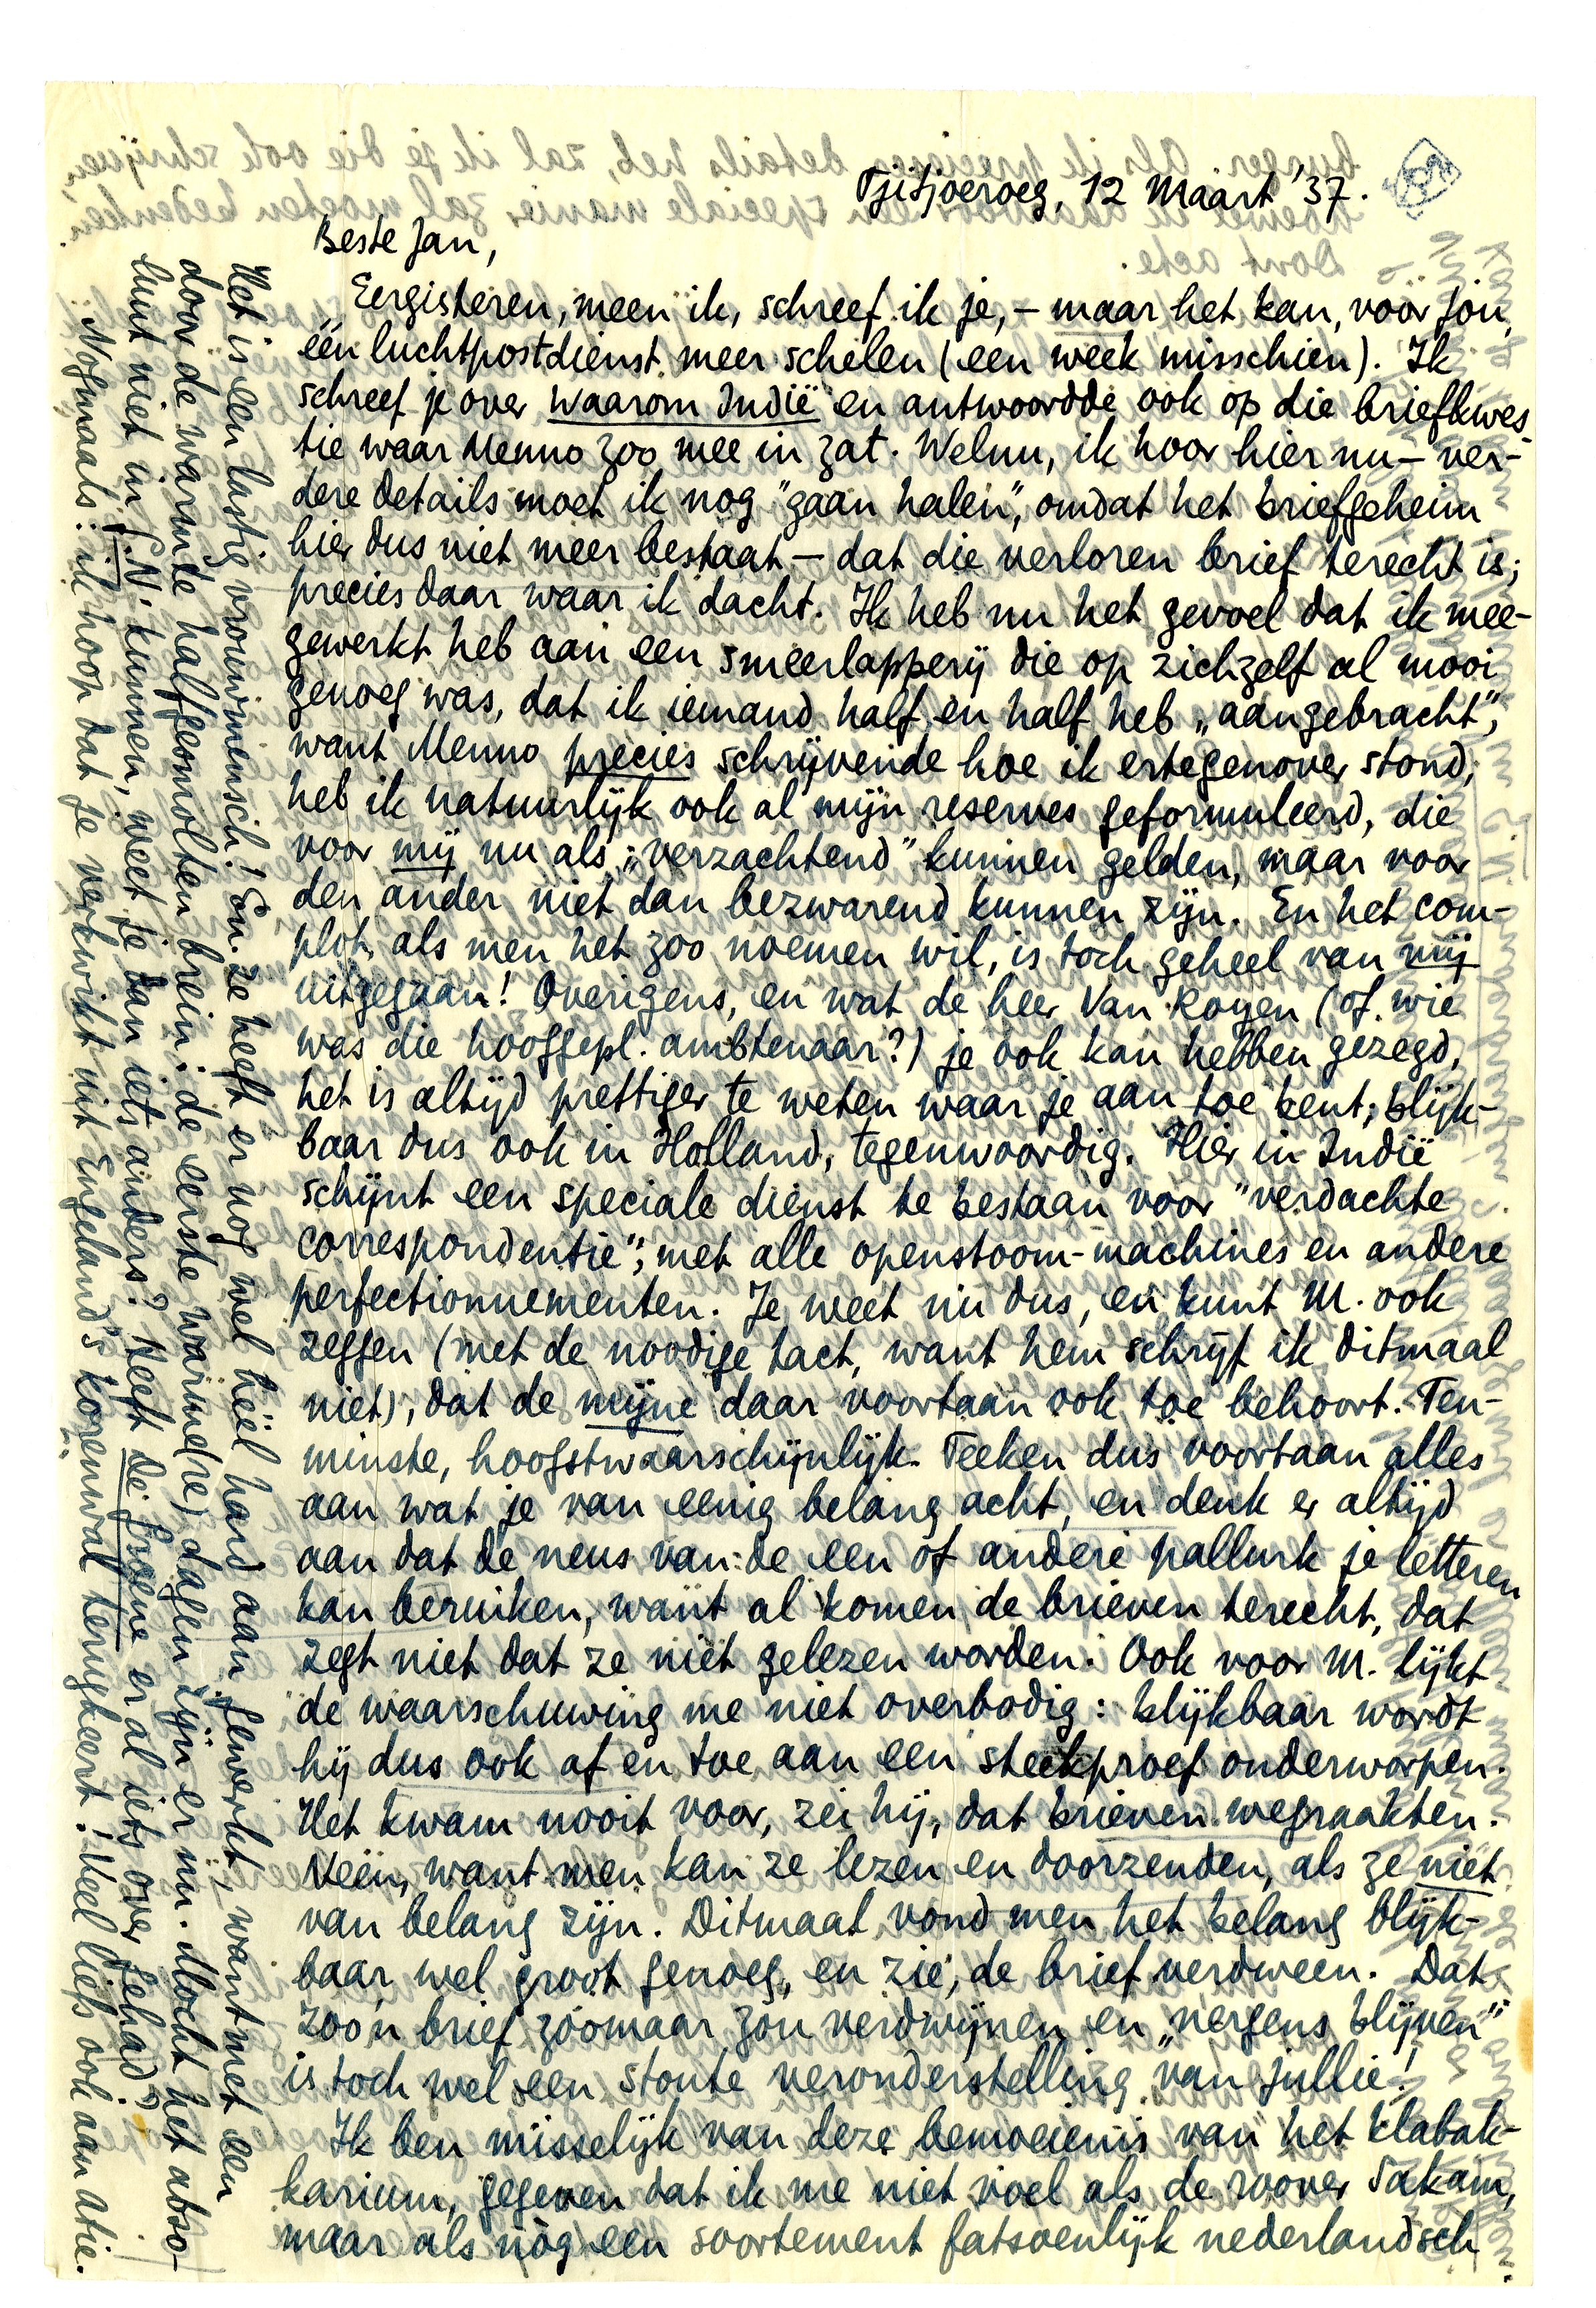 Tjitjoeroeg, 12 Maart '37.
Beste Jan,
Eergisteren, meen ik, schreef ik je, – maar het kan, voor jou,
één luchtpostdienst meer schelen (een week misschien). Ik
schreef je over waarom Indië en antwoordde ook op die briefkwes-
tie waar Menno zoo mee in zat. Welnu, ik hoor hier nu – ver-
dere details moet ik nog "gaan halen", omdat het briefgeheim
hier dus niet meer bestaat – dat die verloren brief terecht is;
precies daar waar ik dacht. Ik heb nu het gevoel dat ik mee-
gewerkt heb aan een smeerlapperij die op zichzelf al mooi
genoeg was, dat ik iemand half en half heb „aangebracht",
want Menno precies schrijvende hoe ik ertegenover stond,
heb ik natuurlijk ook al mijn reserves geformuleerd, die
voor mij nu als „verzachtend" kunnen gelden, maar voor
den ander niet dan bezwarend kunnen zijn. En het com-
plot, als men het zoo noemen wil, is toch geheel van mij
uitgegaan! Overigens, en wat de heer Van Royen (of wie
was die hooggepl. ambtenaar?) je ook kan hebben gezegd,
het is altijd prettiger te weten waar je aan toe bent; blijk-
baar dus ook in Holland, tegenwoordig. Hier in Indië
schijnt een speciale dienst te bestaan voor "verdachte
correspondentie", met alle openstoom-machines en andere
perfectionnementen. Je weet nu dus, en kunt M. ook
zeggen (met de noodige tact, want hem schrijf ik ditmaal
niet), dat de mijne daar voortaan ook toe behoort. Ten-
minste, hoogstwaarschijnlijk. Teeken dus voortaan alles
aan wat je van eenig belang acht, en denk er altijd
aan dat de neus van de een of andere pallurk je letteren
kan beruiken, want al komen de brieven terecht, dat
zegt niet dat ze niet gelezen worden. Ook voor M. lijkt
de waarschuwing me niet overbodig: blijkbaar wordt
hij dus ook af en toe aan een steekproef onderworpen.
Het kwam nooit voor, zei hij, dat brieven wegraakten.
Neen, want men kan ze lezen en doorzenden, als ze niet
van belang zijn. Ditmaal vond men het belang blijk-
baar wel groot genoeg, en zie, de brief verdween. Dat
zoo'n brief zoomaar zou verdwijnen en „nergens blijven"
is toch wel een stoute veronderstelling van jullie!
Ik ben misselijk van deze bemoeienis van het klabak-
karium, gegeven dat ik me niet voel als de roover Sakam,
maar als nòg een soortement fatsoenlijk nederlandsch
Het is een lastig vrouwmensch! En ze heeft er nog wel héél hard aan gewerkt, want met een
door de warmte halfgesmolten brein (de eerste warme (dre) dagen zijn er nu. Mocht het abso-
luut niet in G.N. kunnen, weet je dan iets anders? Heeft de Groene er al iets over gehad?
Nogmaals: ik hoop dat je verkwikt uit Engeland's korenwal terugkeert! Veel liefs ook aan Atie.